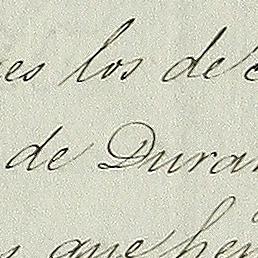 es los de
de Duran
que hen